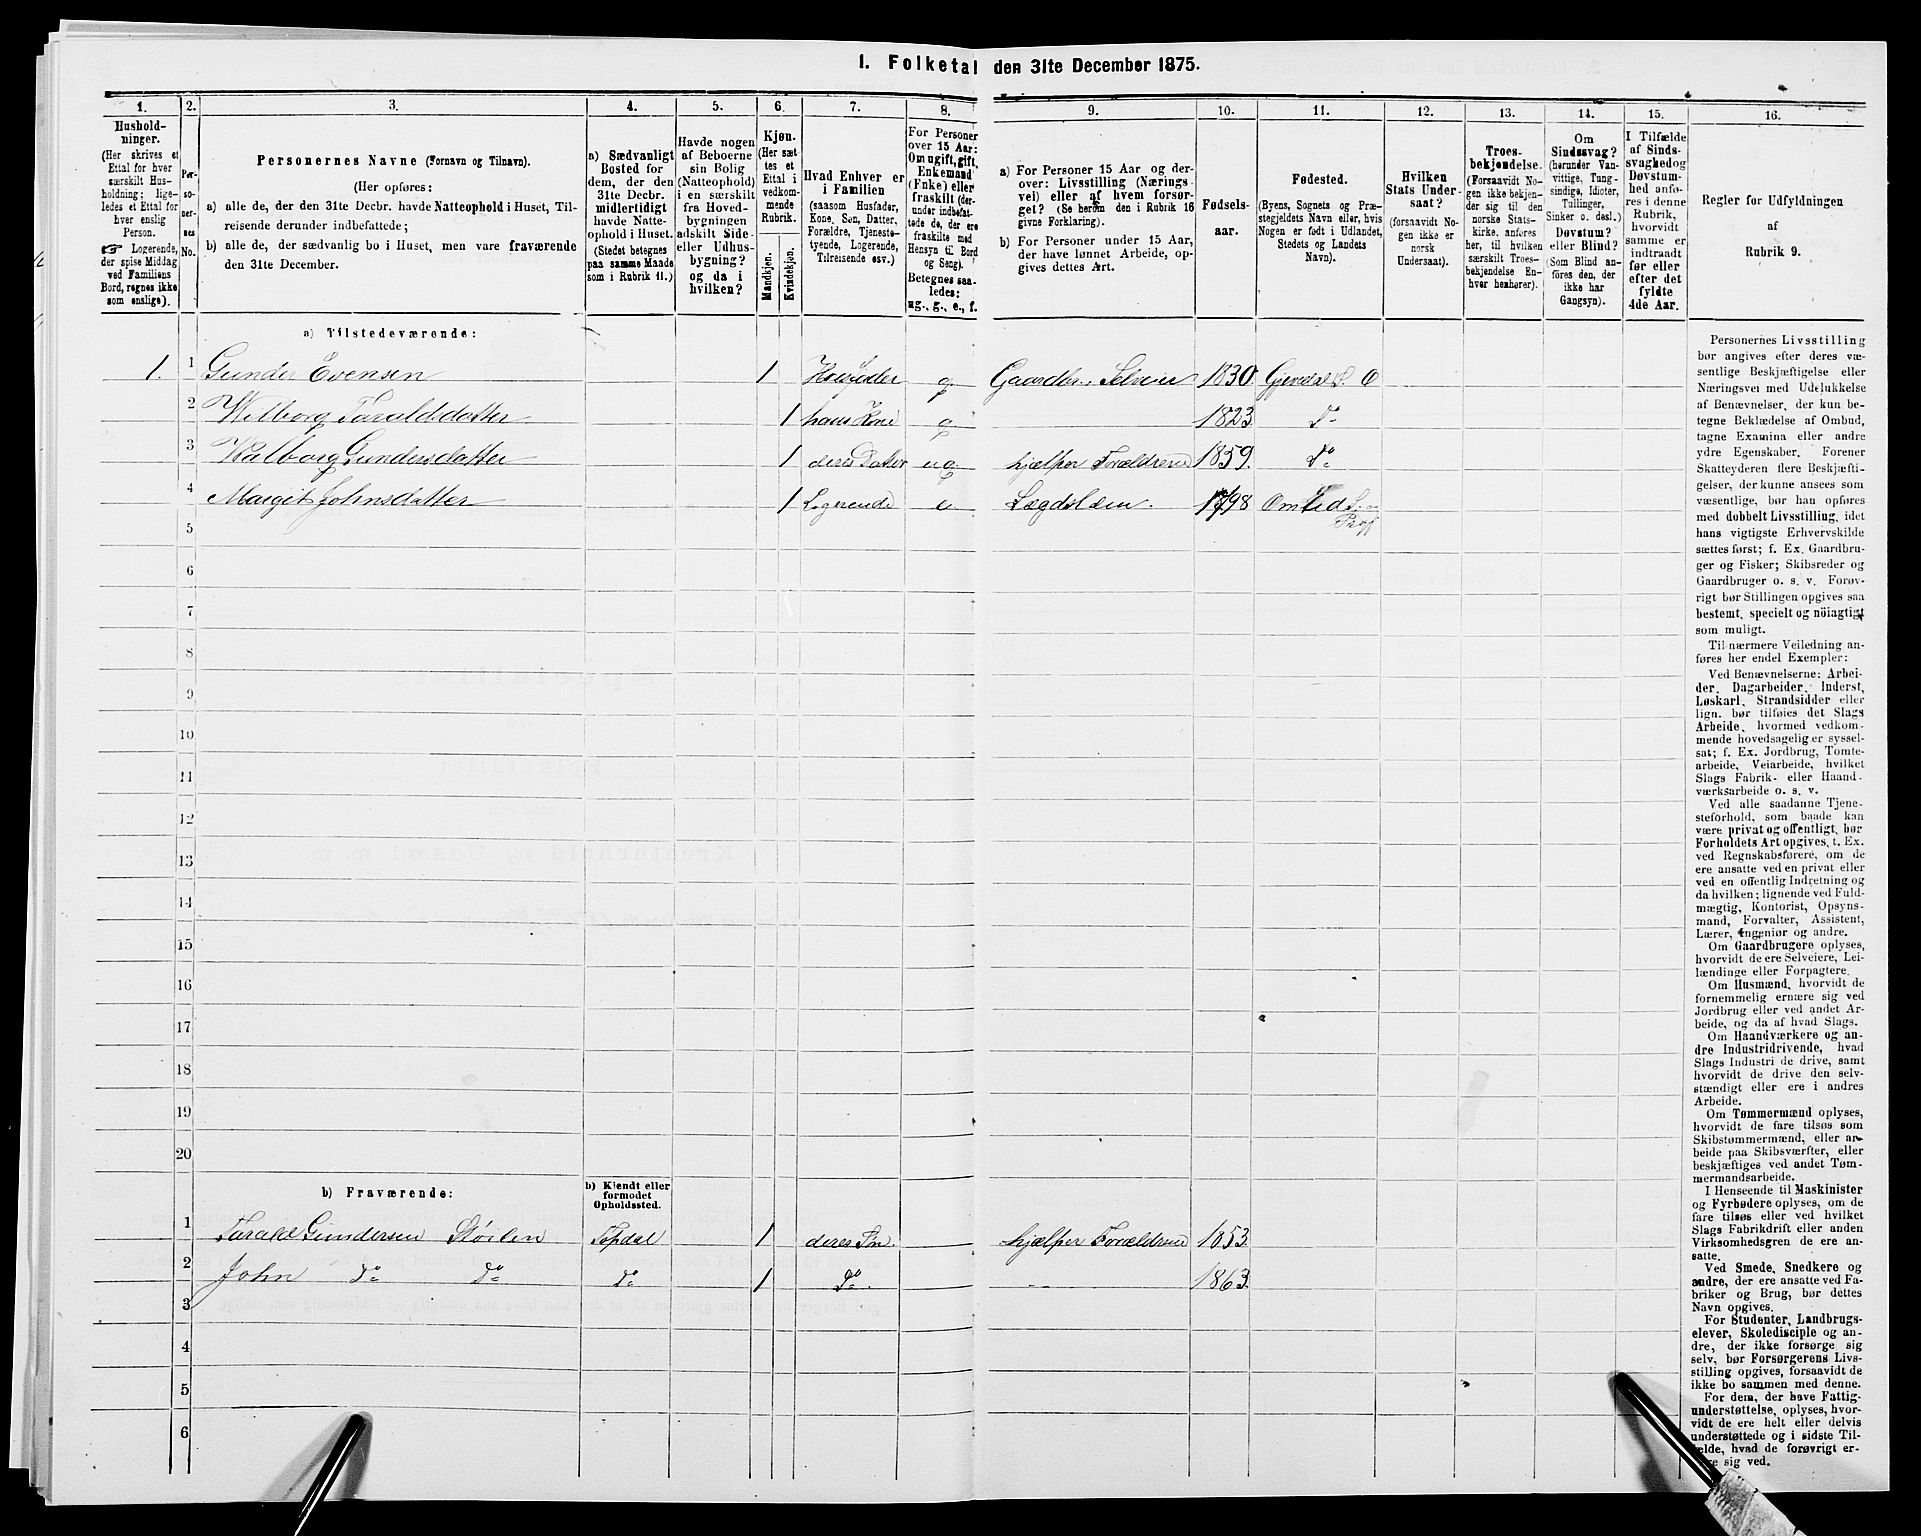 1. Folketal den 31te December 1875.
1. 2. 3. 4. 5. 6. 7. 8. 9. 10. 11. 12. 13. 14. 15. 16.
Hushold-
ninger.
(Her skrives et
Ettal for hver
særskilt Hus-
holdning; lige-
ledes et Ettal for
hver enslig
Person.
☞ Logerende,
der spise Middag
ved Familiens
Bord, regnes ikke
som enslige).
Per-
so-
ner-
nes
No.
Personernes Navne (Fornavn og Tilnavn).
(Her opføres:
a) alle de, der den 31te Decbr. havde Natteophold i Huset, Til-
reisende derunder indbefattede;
b) alle de, der sædvanlig bo i Huset, men vare fraværende
den 31te December.
a) Sædvanligt
Bosted for
dem, der den
31te Decbr.
midlertidigt
havde Natte-
ophold i Huset.
(Stedet betegnes
paa samme Maade
som i Rubrik 11.)
Havde nogen
af Beboerne
sin Bolig
(Natteophold)
i en særskilt
fra Hoved-
bygningen
adskilt Side-
eller Udhus-
bygning?
og da i
hvilken?
Kjøn.
(Her sæt-
tes et
Ettal i
vedkom-
mende
Rubrik.
Mandkjøn.
Kvindekjøn.
Hvad Enhver er
i Familien
(saasom Husfader,
Kone, Søn, Datter,
Forældre, Tjeneste-
tyende, Logerende,
Tilreisende osv.)
For Personer
over 15 Aar:
Om ugift, gift,
Enkemand
(Enke) eller
fraskilt (der-
under indbefat-
tede de, der ere
fraskilte med
Hensyn til Bord
og Seng).
Betegnes saa-
ledes:
ug., g., e., f.
a) For Personer 15 Aar og der-
over: Livsstilling (Nærings-
vei) eller af hvem forsør-
get? (Se herom den i Rubrik 16
givne Forklaring).
b) For Personer under 15 Aar,
der have lønnet Arbeide, op-
gives dettes Art.
Fødsels-
aar.
Fødested.
(Byens, Sognets og Præ-
stegjeldets Navn eller, hvis
Nogen er født i Udlandet,
Stedets og Landets
Navn).
Hvilken
Stats Under-
saat?
(forsaavidt No-
gen ikke er
norsk
Undersaat).
Troes-
bekjendelse.
(Forsaavidt No-
gen ikke bekjen-
der sig til den
norske Stats-
kirke, anføres
her, til hvilken
særskilt Troes-
bekjendelse En-
hver henhører).
Om
Sindssvag?
(herunder Van-
vittige, Tung-
sindige, Idioter,
Tullinger,
Sinker o. desl.)
Døvstum?
eller Blind?
(Som Blind an-
føres den, der
ikke har
Gangsyn).
I Tilfælde
af Sinds-
svaghed og
Døvstum-
hed anfø-
res i denne
Rubrik,
hvorvidt
samme er
indtraadt
før eller
efter det
fyldte
4de Aar.
Regler for Udfyldningen
af
Rubrik 9.
a) Tilstedeværende:
1. 1 Gunder Evensen 1 Husfader g. Gaardbr., Selveier 1830. Gjevedal S. O
2 Wilborg Taraldsdatter 1 hans Kone g. 1823. do
3 Walborg Gundersdatter 1 deres Datter ug. hjælper Forældrene 1859. do
4 Margit Johnsdatter 1 Logerende e. Lægdslem. 1798 Omlid S. og
Prgj
5
6
7
8
9
10
11
12
13
14
15
16
17
18
19
20
b) Fraværende:
b) Kjendt eller
formodet
Opholdssted.
1 Tarald Gundersen Stöilen Topdal 1 deres Sön. hjælper Forældrene 1853.
2 John do do do 1 do 1863.
3
4
5
6
Personernes Livsstilling
bør angives efter deres væ-
sentlige Beskjæftigelse eller
Næringsvei med Udelukkelse
af Benævnelser, der kun be-
tegne Beklædelse af Ombud,
tagne Examina eller andre
ydre Egenskaber. Forener
Skatteyderen flere Beskjæfti-
gelser, der kunne ansees som
væsentlige, bør han opføres
med dobbelt Livsstilling, idet
hans vigtigste Erhvervskilde
sættes først; f. Ex. Gaardbru-
ger og Fisker; Skibsreder og
Gaardbruger o. s. v. Forøv-
rigt bør Stillingen opgives saa
bestemt, specielt og nöiagtigt
som muligt.
Til nærmere Veiledning an-
føres her endel Exempler:
Ved Benævnelserne: Arbei-
der, Dagarbeider, Inderst,
Løskarl, Strandsidder eller
lign. bør tilføies det Slags
Arbeide, hvormed vedkom-
mende hovedsagelig er syssel-
sat; f. Ex. Jordbrug, Tomte-
arbeide, Veiarbeide, hvilket
Slags Fabrik- eller Haand-
værksarbeide o. s. v.
Ved alle saadanne Tjene-
steforhold, som baade kan
være privat og offentligt, bør
Forholdets Art opgives, f. Ex.
ved Regnskabsførere, om de
ere ansatte ved en privat eller
ved en offentlig Indretning og
da hvilken; lignende ved Fuld-
mægtig, Kontorist, Opsyns-
mand, Forvalter, Assistent,
Lærer, Ingeniør og andre.
Om Gaardbrugere oplyses,
hvorvidt de ere Selveiere, Lei-
lændinge eller Forpagtere.
Om Husmænd, hvorvidt de
fornemmelig ernære sig ved
Jordbrug eller ved andet Ar-
beide, og da af hvad Slags.
Om Haandværkere og an-
dre Industridrivende, hvad
Slags Industri de drive, samt
hvorvidt de drive den selv-
stændigt eller ere i andres
Arbeide.
Om Tømmermænd oplyses,
hvorvidt de fare tilsøs som
Skibstømmermænd, eller ar-
beide paa Skibsværfter, eller
beskjæftiges ved andet Tøm-
mermandsarbeide.
I Henseende til Maskinister
og Fyrbødere oplyses, om de
fare tilsøs eller ved hvilket
Slags Fabrikdrift eller anden
Virksomhedsgren de ere an-
satte.
Ved Smede, Snedkere og
andre, der ere ansatte ved Fa-
briker og Brug, bør dettes
Navn opgives.
For Studenter, Landbrugs-
elever, Skoledisciple og an-
dre, der ikke forsørge sig
selv, bør Forsørgerens Livs-
stilling opgives, forsaavidt de
ikke bo sammen med denne.
For dem, der have Fattig-
understøttelse, oplyses, hvor-
vidt de ere helt eller delvis
understøttede og i sidste Til-
fælde, hvad de forøvrigt er-
nære sig ved.